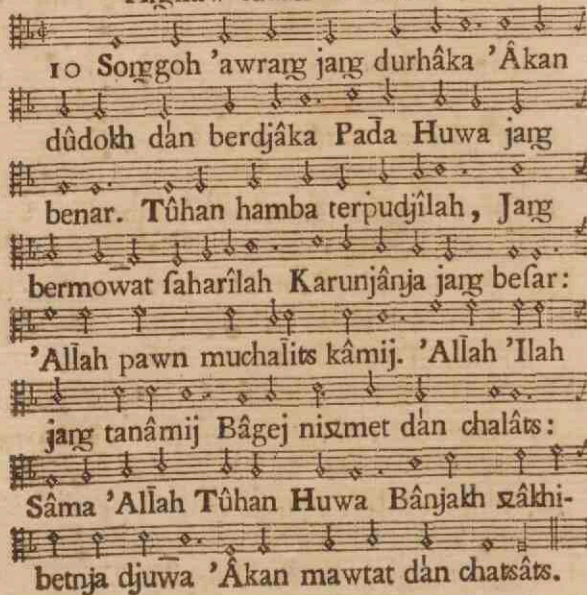 10 Songgoh 'awrang jang durhâka 'Âkan
dûdokh dán berdjâka Pada Huwa jang
benar. Tûhan hamba terpudjîlah, Jang
bermowat ſaharîlah Karunjânja jang beſar:
'Allah pawn muchalits kâmij. 'Allah 'Ilah
jang tanâmij Bâgej nixmet dán chalâts:
Sâma 'Allah Tûhan Huwa Bânjakh xâkhi-
betnja djuwa 'Âkan mawtat dán chatsâts.